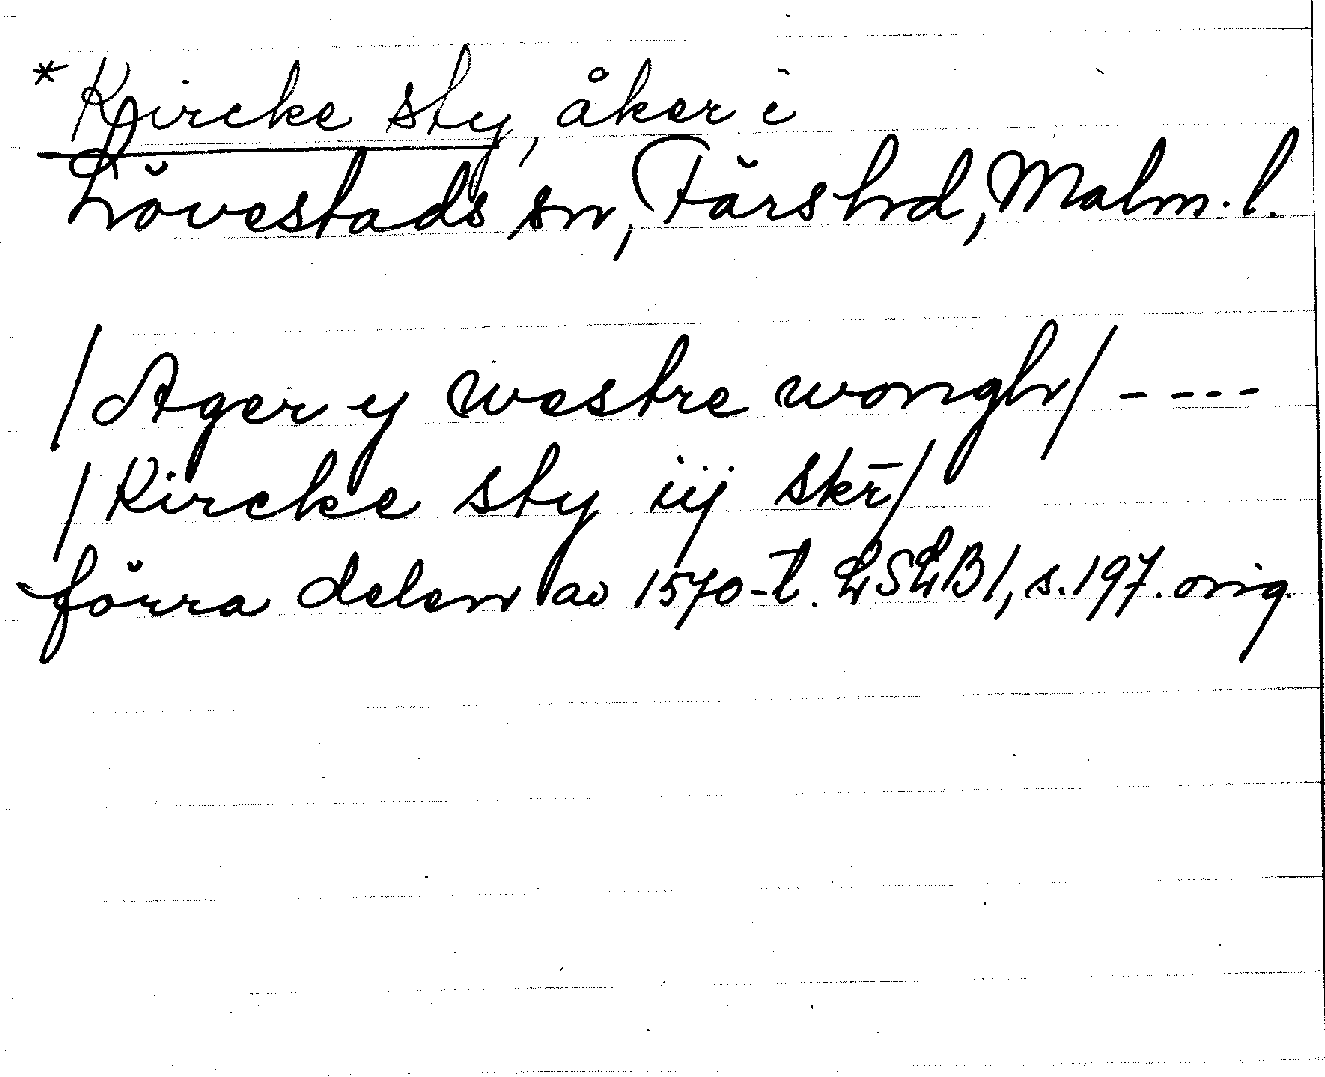 *Kircke sty, åker i
Lövestads sn, Färs hd, Malm. l.
/Ager y westre wongh/ - - - -
/Kircke sty iij skr̄/
förra delen av 1570-t. LSLB1, s. 197. orig.